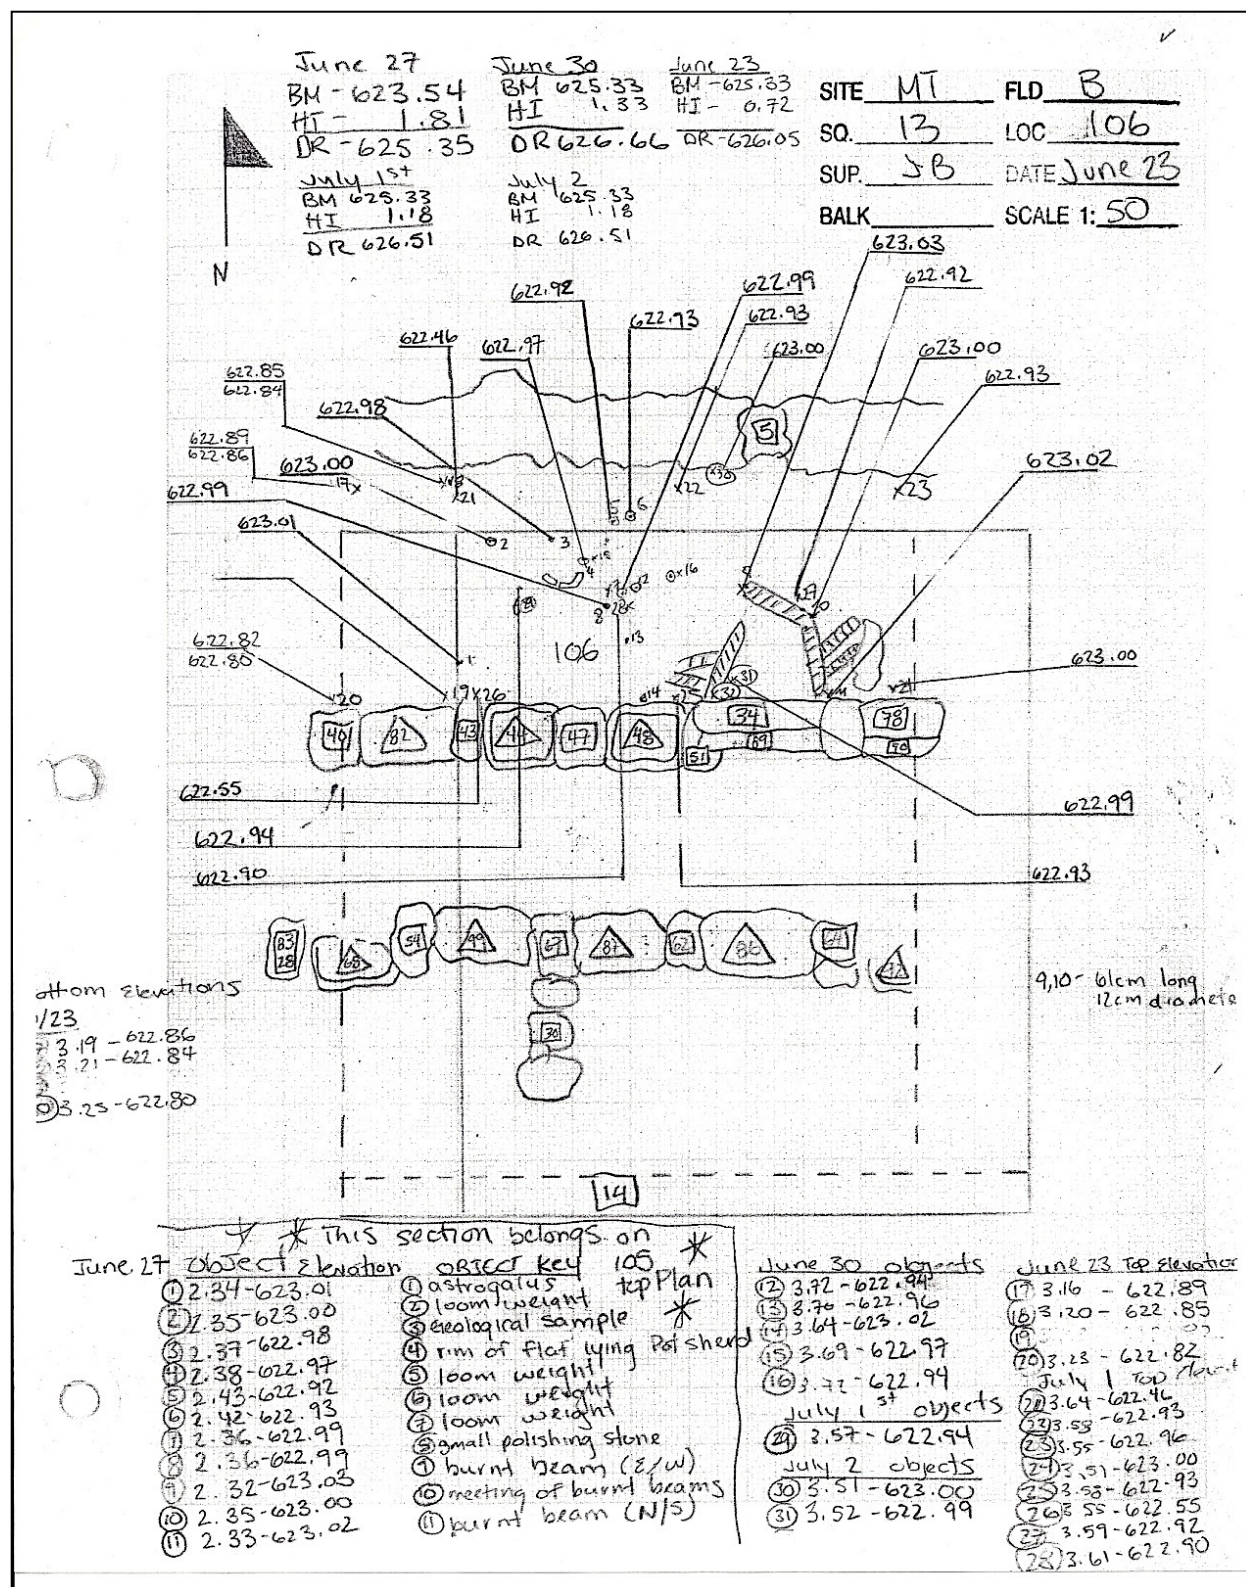 June 27
BM - 623.54
HI - 1.81
DR - 625.35
June 30
BM 625.33
HI 1.33
DR 626.66
June 23
BM - 625.33
HI - 0.72
DR - 626.05
July 1st
BM 625.33
HI 1.18
DR 626.51
July 2
BM 625.33
HI 1.18
DR 626.51
SITE MT FLD B
SQ. 13 LOC 106
SUP. JB DATE June 23
BALK SCALE 1: 50
N
623.03
622.92
622.92
622.99
622.93
622.93
622.46
622.97
623.00
623.00
622.93
622.85
622.84
622.98
5
622.89
622.86
623.00
17
21
30
22
23
623.02
622.99
5
6
623.01
2
3
4
16
12
29
8
28
13
106
1
622.82
622.80
623.00
20
19
26
14
25
31
32
40
82
43
44
47
48
34
78
51
622.55
622.99
622.94
622.90
622.93
83
28
68
54
99
67
87
62
86
30
9,10 - 61cm long
12cm diamete
ottom Elevations
/23
3.19 - 622.86
3.21 - 622.84
3.25 - 622.80
14
* This section belongs on
105
top Plan
June 27 Object Elevation
1 2.34-623.01
2 2.35-623.00
3 2.37-622.98
4 2.38-622.97
5 2.43-622.92
6 2.42-622.93
7 2.36-622.99
8 2.36-622.99
9 2.32-623.03
10 2.35-623.00
11 2.33-623.02
OBJECT KEY
1 astrogalus
2 loom weight
3 geological sample
4 rim of flat lying Pot sherd
5 loom weight
6 loom weight
7 loom weight
8 small polishing stone
9 burnt beam (E/W)
10 meeting of burnt beams
11 burnt beam (N/S)
June 30 objects
12 3.72-622.94
13 3.70-622.96
14 3.64-623.02
15 3.69-622.97
16 3.72-622.94
July 1st objects
29 3.57-622.94
July 2 objects
30 3.51-623.00
31 3.52-622.99
June 23 Top Elevation
17 3.16 - 622.89
18 3.20 - 622.85
19
20 3.23 - 622.82
July 1 Top
21 3.64-622.46
22 3.53-622.93
23 3.55-622.96
24 3.51-623.00
25 3.53-622.93
26 3.55-622.55
27 3.59-622.92
28 3.61-622.90